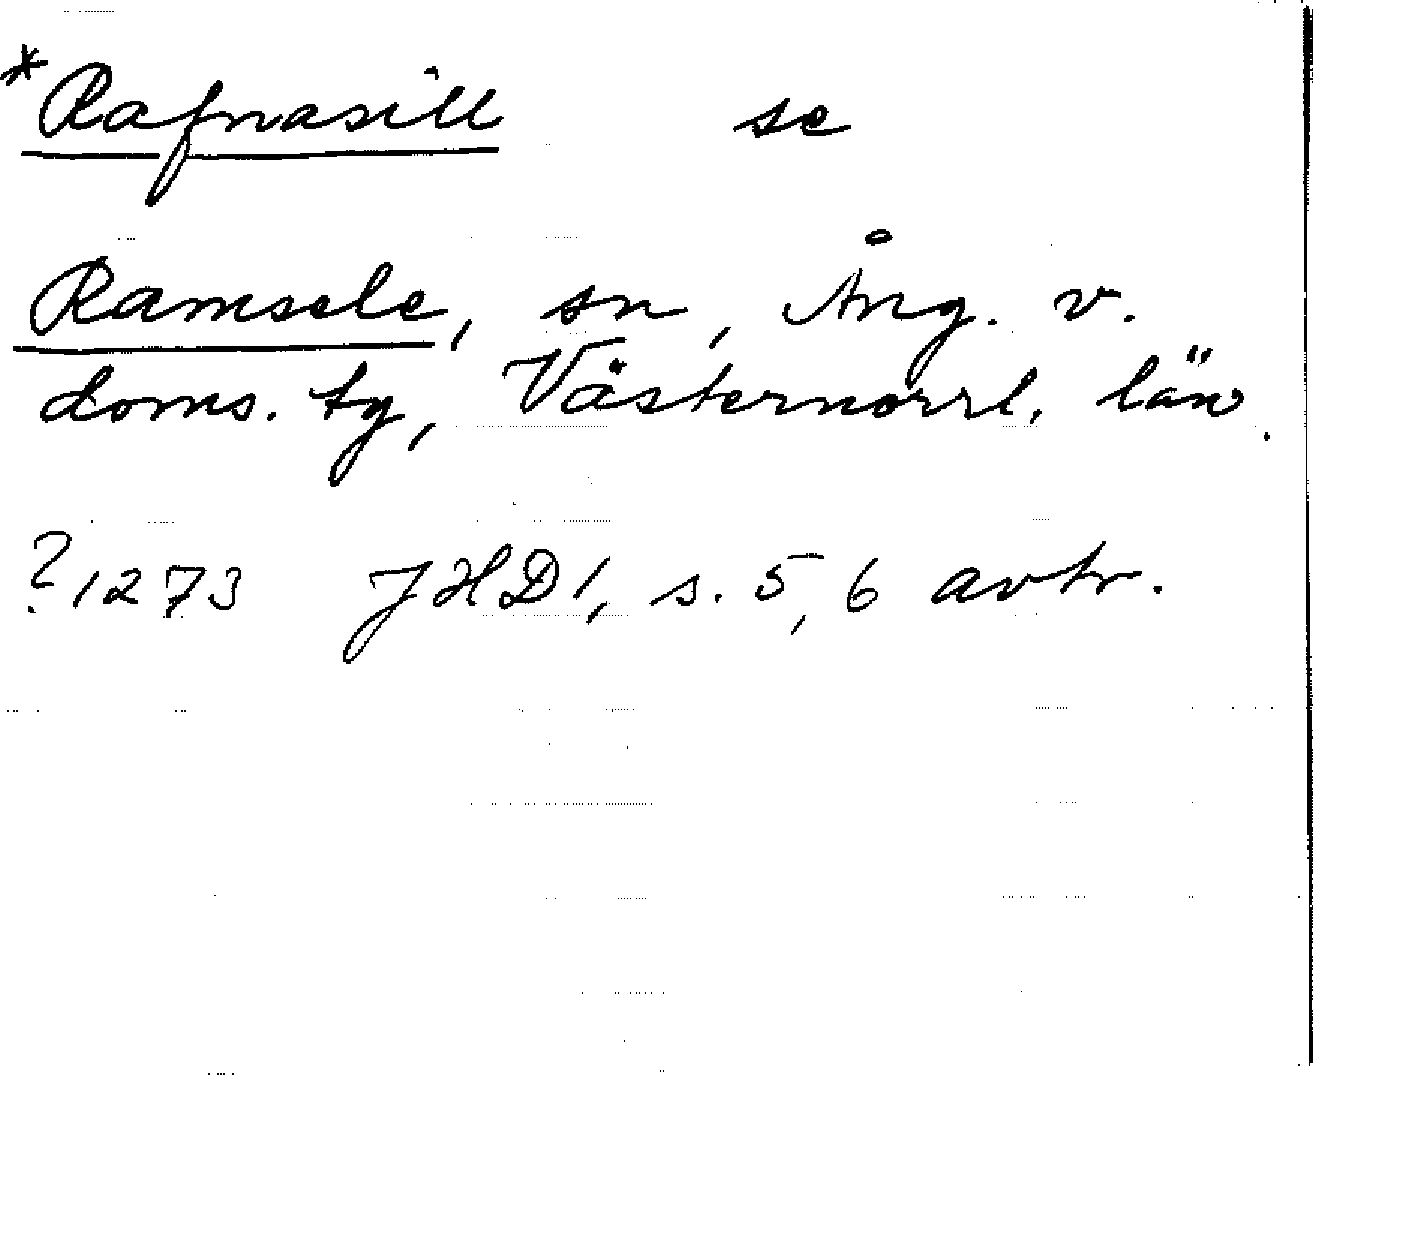 *Rafnasill se
Ramsele, sn, Ång. v.
doms. tg, Västernorrl. län.
?1273 JHD 1, s. 5, 6 avtr.